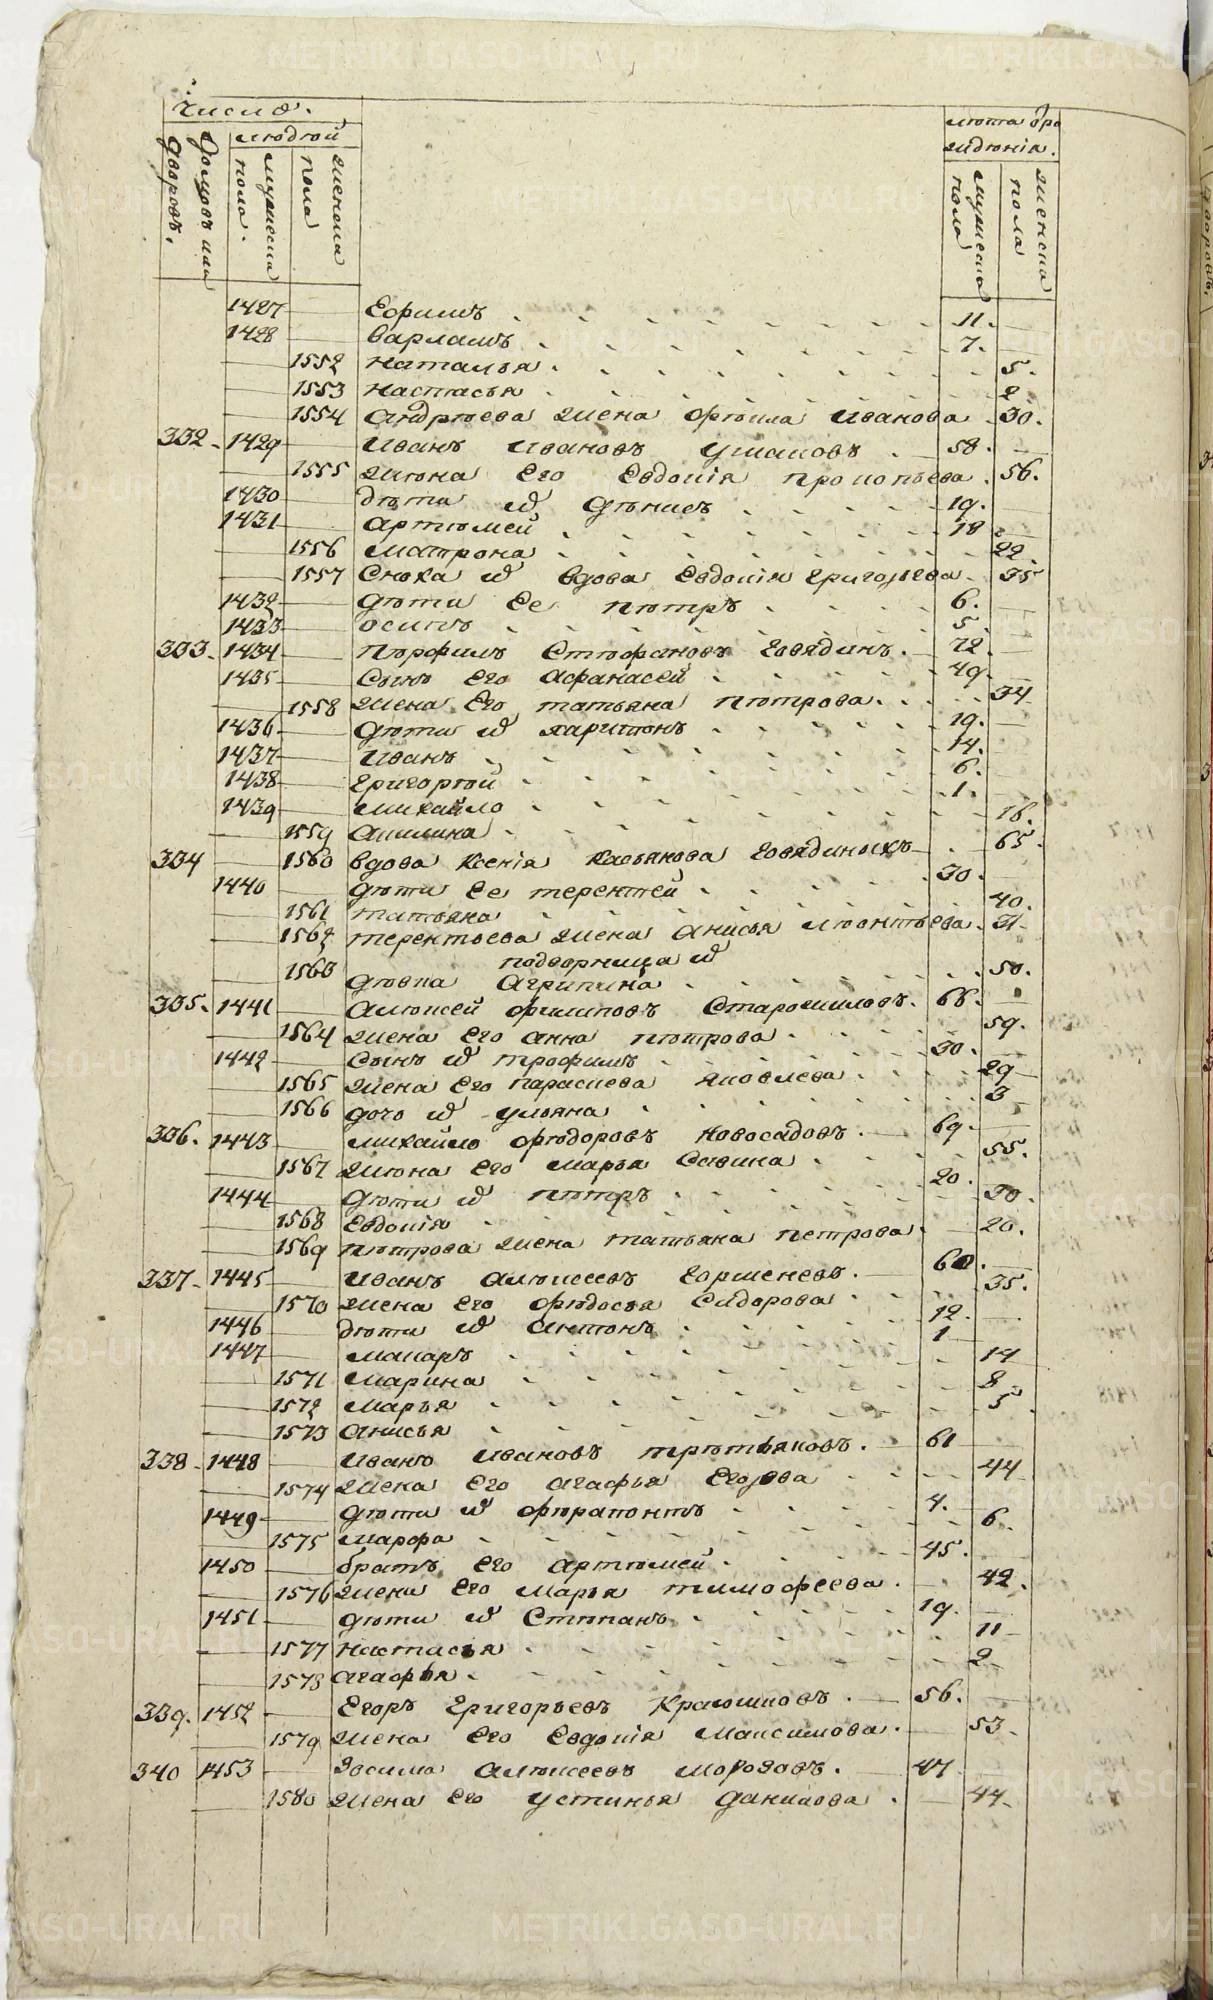 число.
людей
лета от ро
ждения.
домов или дворовъ.
мужеска пола.
женска пола
мужеска пола
женска пола
1427 Ефимъ 11.
1428 варламъ 7.
1552 наталья 5.
1553 настасья 2
1554 андреева жена Иванова 30.
332 1429 Иванъ Ивановъ Ушаковъ 58.
1555 жена Его Евдокія прокопьева 56.
1430 дети 19.
1431 артемей 18
1556 матрона 22
1557 Сноха вдова Евдокія григорьева 35
1432 дети Ее петръ 6.
1433 осипъ 5
333 1434 перфилъ Стефановъ говядинъ 72.
1435 Сынъ Его афанасей 49.
1558 жена Его татьяна петрова 34
1436 дети харитонъ 19.
1437 Иванъ 14.
1438 григорей 6.
1439 михайло 1.
1559 акилина 16.
334 1560 вдова ксенія касьянова говядиныхъ 65.
1440 дети Ее терентей 30.
1561 татьяна 40.
1562 терентьева жена анисья леонтьева 31
подворница
1563 девка агрипина 50.
335. 1441 алексей филиповъ 66.
1564 жена Его анна петрова 59.
1442 Сынъ трофимъ 30.
1565 жена Его параскева яковлева 29
1566 дочь ульяна 3
336. 1443 михайло федоровъ новосадовъ 69.
1567 жена Его марья Савина 55.
1444 дети петръ 20.
1568 Евдокія 30.
1569 петрова жена татьяна петрова 20.
337 1445 Иванъ алексеевъ горшеневъ 60.
1570 жена Его федосья Сидорова 35.
1446 дети антонъ 12.
1447 макаръ 1
1571 марина 14
1572 марья 8
1573 анисья 5
338 1448 Иванъ Ивановъ третьяковъ 61
1574 жена Его агафья Егорова 44
1449 дети ферапонтъ 4.
1575 марфа 6.
1450 братъ Его артемей 45.
1576 жена Его марья тимофеева 42.
1451 дети Степанъ 19.
1577 настасья 11
1578 агафья 2
339. 1452 Егоръ григорьевъ 56.
1579 жена Его Евдокія максимова 53.
340 1453 Зосима алексеевъ морозовъ 47
1580 жена Его устинья данилова 44
METRIKI.GASO-URAL.RU